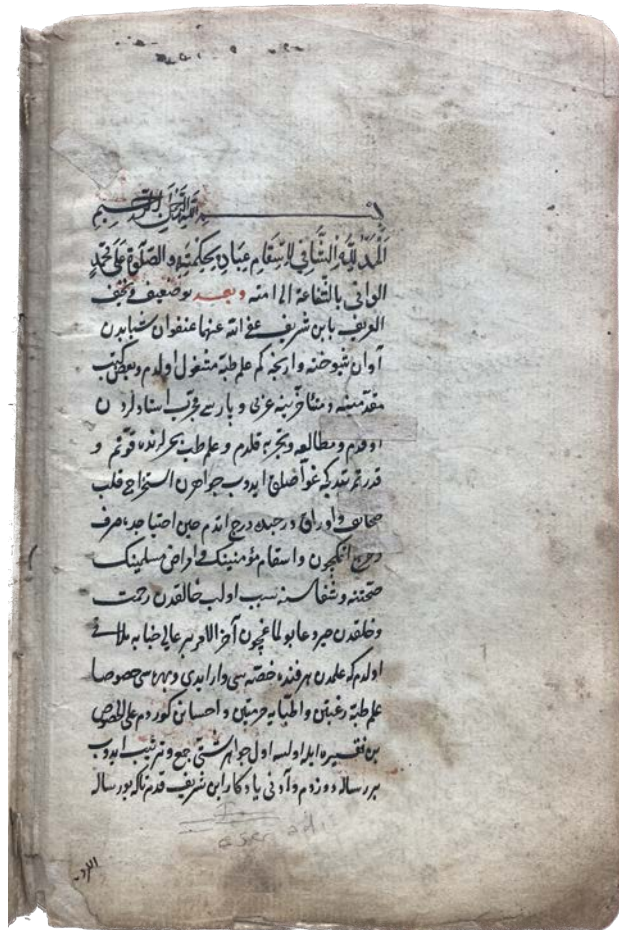 بسم الله الرحمن الرحيم
الحمد لله الشافي لاسقام عباده بحكمته و الصلوة على محمد
الوافي بالشفاعة الى امته وبعد بو ضعيف و نحيف
المعروف بابن شريف عفى الله عنهما عنفوان شبابدن
آوان شيوخته وارنجه كم علم طبه مشغول اولدم و بعض كتب
متقدمينه و متأخرينه عربى و پارسى مجرب استادلردن
اوقدم و مطالعه و تجربه قلدم و علم طب بحرلرنده قوتم و
قدرتم يتدكجه غواصلق ايدوب جواهرن استخراج قلب
صحائف و اوراق درجنده درج اتدم حين احتياجده صرف
و خرج اتمكچون و اسقام مؤمنينك و امراض مسلمينك
صحتنه و شفاسنه سبب اولب خالقدن رحمت
و خلقدن خير دعا بولماغچون آخر الامر بر عالى جنابه ملاقى
اولدم كه علمدن هر فنده حصه سى وار ايدى و بهره سى خصوصا
علم طبه رغبتين و اطبايه حرمتين و احسانن كوردم على الخصوص
بن فقيره ايله اولسه اول جواهر شتى جمع و ترتيب ايدوب
بر رساله دوزدم و آدنى يادكار ابن شريف قودم تاكه بو رساله
eser adı